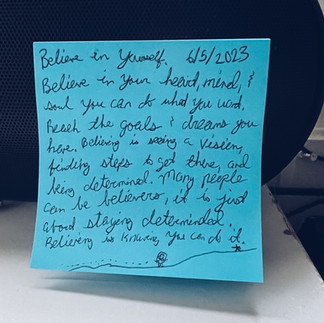 Believe in Yourself. 6/5/2023
Believe in Your heard, mind, &
soul you can do what you want,
Reach the goals & dreams you
have. Believing is seeing a vision,
finding steps to get there, and
being determined. Many people
can be believers, it is just
about staying determinded.
Believing is knowing you can do it.